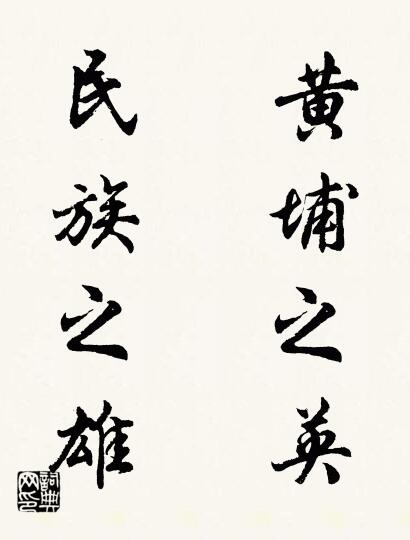 黄埔之英
民族之雄
詞典網印